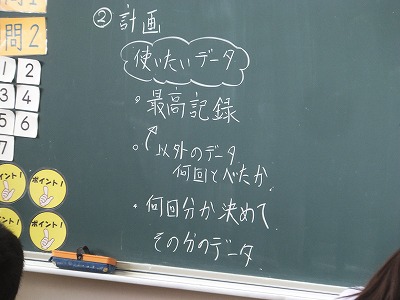 ② 計画
使いたいデータ
・最高記録
・以外のデータ
何回とべたか.
・何回分か決めて
その分のデータ.
問2
1 2
3 4
5 6
7
ポイント!
ポイント!
ポイント!
ポイント!